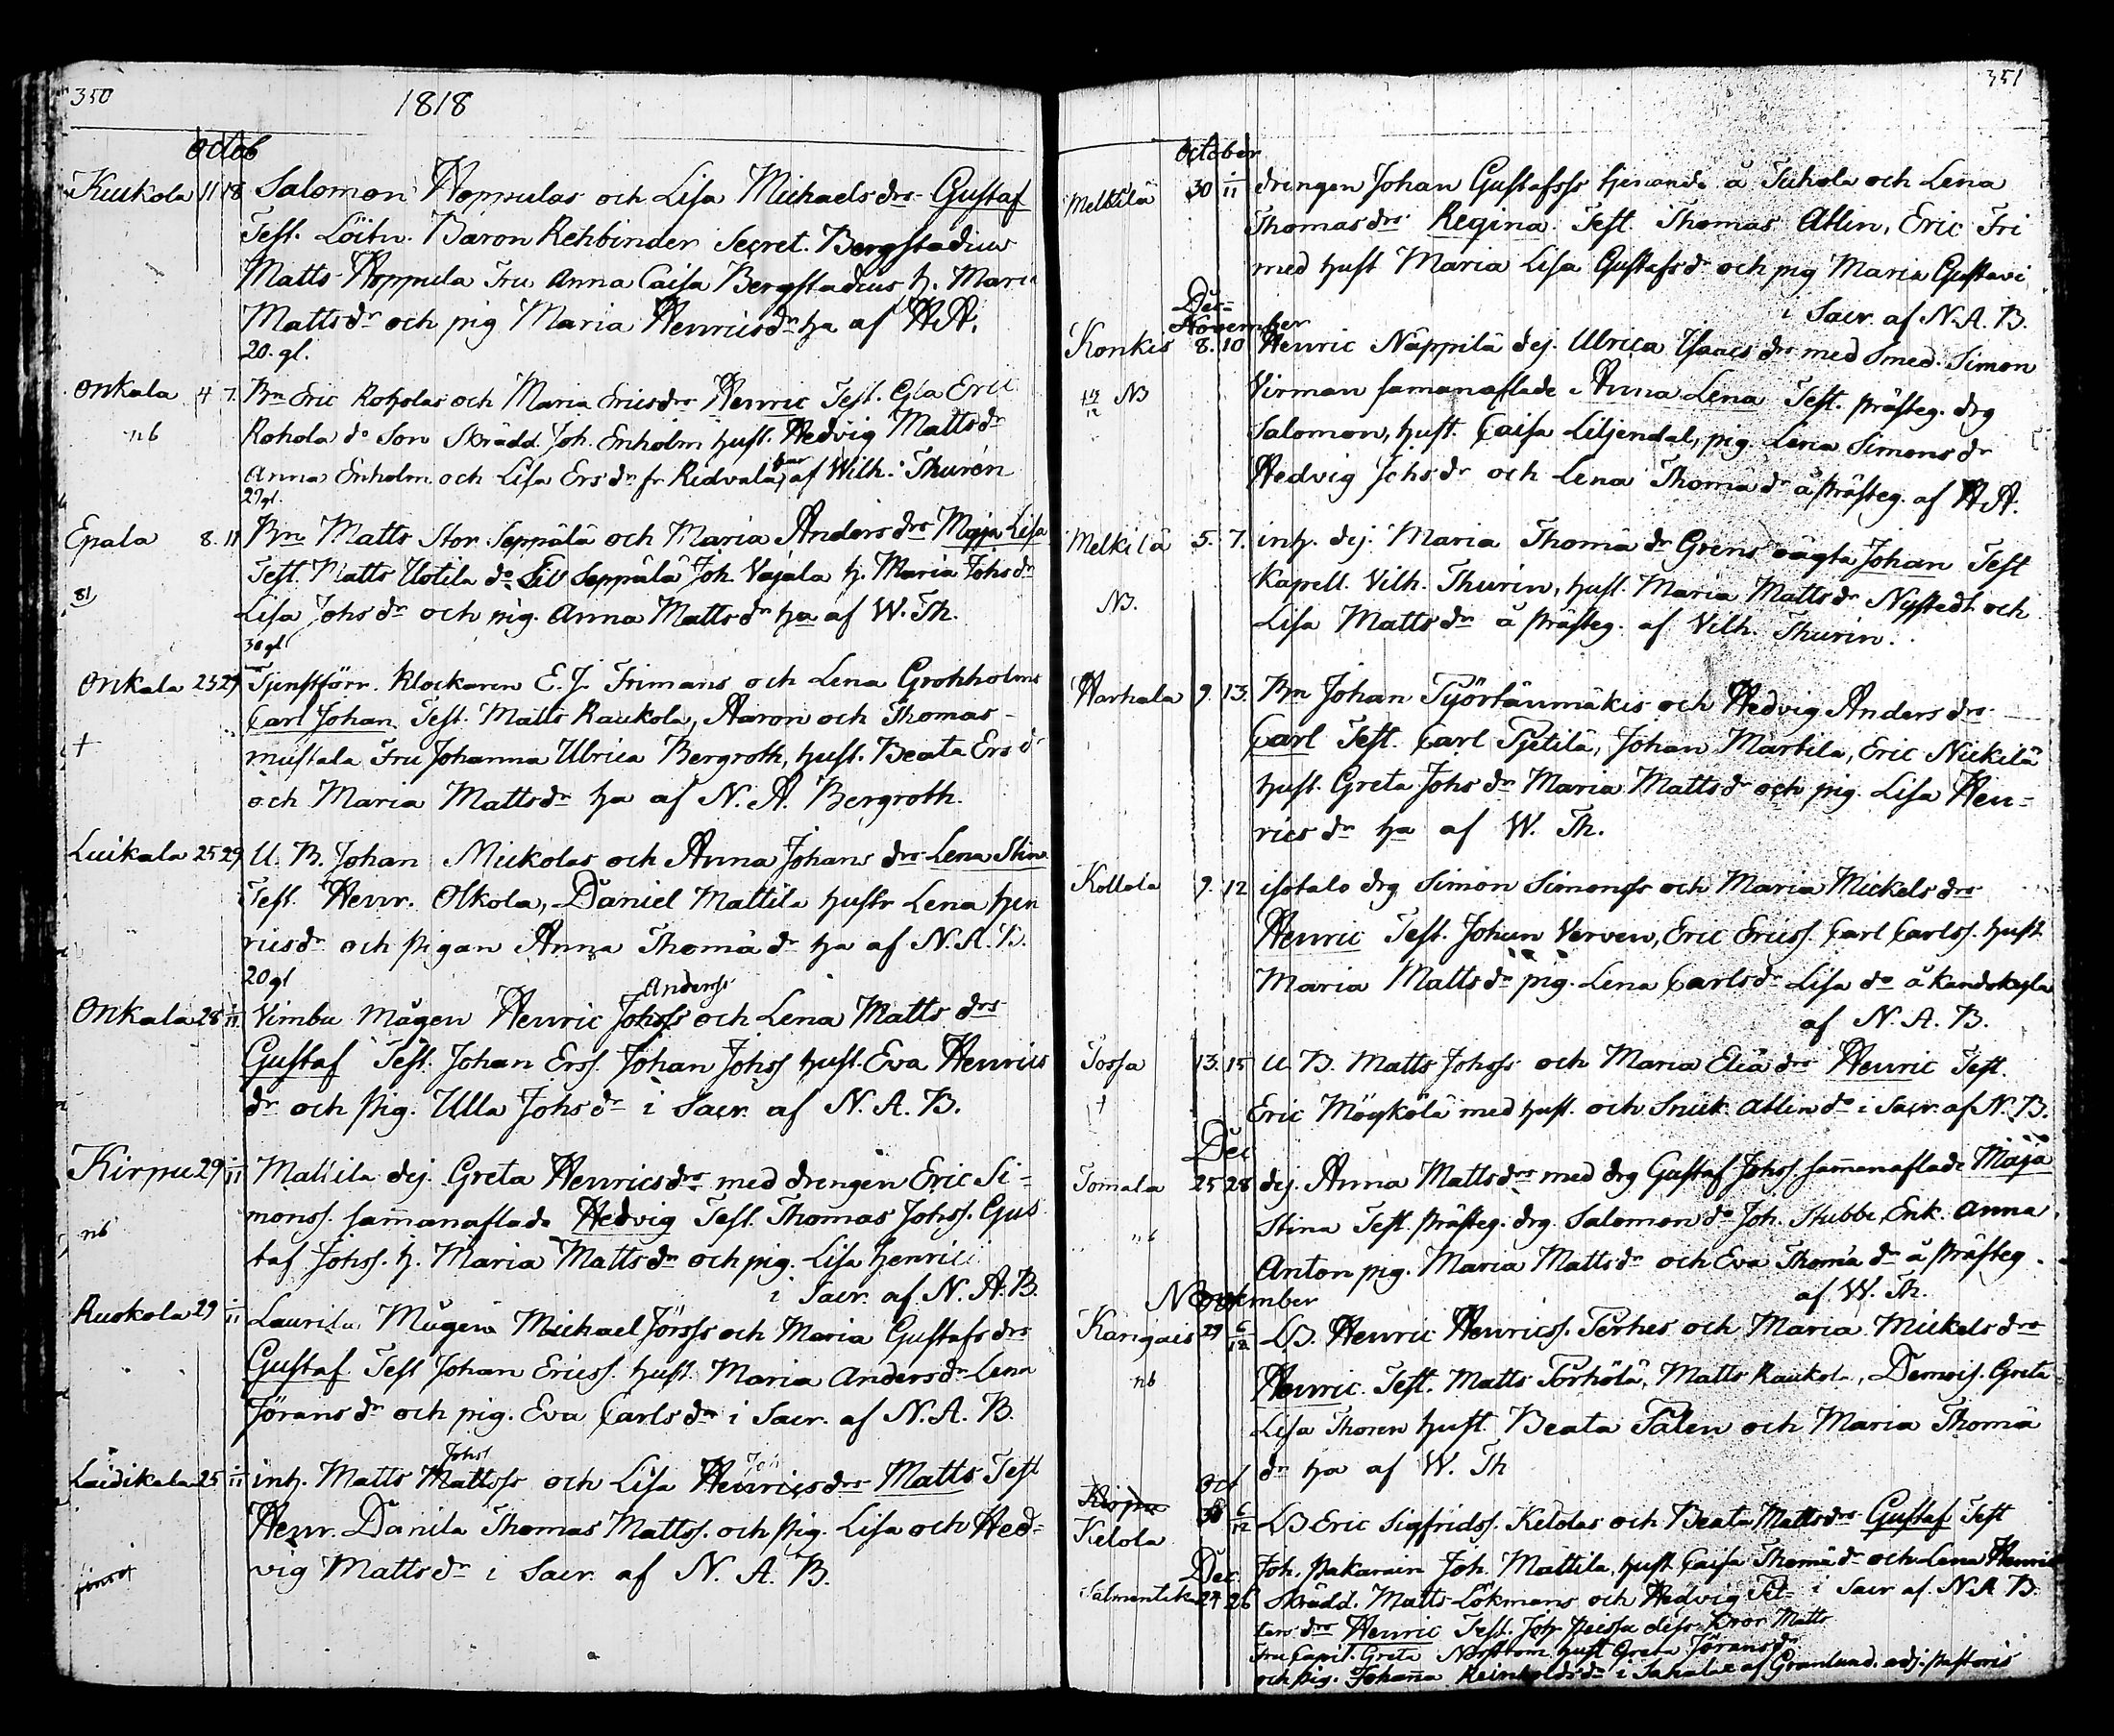 350
1818
Octob
Kuikola 11 18 Salomon Hoppulas och Lisa Michaels drs Gustaf
Test. Löitn. Baron Rehbinder Secret. Bergstadius
Matts Hoppula Fru Anna Caisa Bergstadius h. Maria
Matts dr och pig Maria Henrics dr ha af H A.
20. gl.
Onkala 4 7. Bn Eric Roholas och Maria Erics drs Henric Test. Gla Eric
nb Rohola do Son Skrädd. Joh. Enholm hust. Hedvig Matts dr
Anna Enholm och Lisa Ers dr fr Ridvala, af Wilh. Thurén
27 gl.
Epala 8. 11 Bn Matts Stor Seppälä och Maria Anders drs Maja Lisa
Test. Matts Uotila do Lill Seppälä Joh. Vajala h. Maria Johs dr
81 Lisa Johs dr och pig. Anna Matts dr ha af W. Th.
30 gl
Onkala 25 29 Tjenstförr. Klockaren E. J. Frimans och Lena Grohholms
Carl Johan Test. Matts Raukola, Aaron och Thomas
+ mustala Fru Johanna Ulrica Bergroth, hust. Beata Ers dr
och Maria Matts dr ha af N. A. Bergroth.
Luikala 25 29 U. B. Johan Mickolas och Anna Johans drs Lena Stina
Test. Henr. Olkola, Daniel Mattila hustr Lena Hen
rics dr och Pigan Anna Thomä dr ha af N. A. B.
20 gl
Anderss
Onkala 28 1/11 Vimbu Mågen Henric Johss och Lena Matts drs
Gustaf Test. Johan Erss. Johan Johss hust. Eva Henrics
dr och Pig. Ulla Johs dr i Sacr. af N. A. B.
Kirpu 29 1/11 Mattila dej. Greta Henrics drs med drengen Eric Si=
monss. sammanaflade Hedvig Test. Thomas Johss. Gus
nb taf Johss. h. Maria Matts dr och pig. Lisa Henrici
i Sacr. af N. A. B.
Ruokola 29 1/11 Laurila Mågen Michael Jörss och Maria Gustafs drs
Gustaf Test Johan Ericss. hust. Maria Anders dr Lena
Jörans dr och pig. Eva Carls dr i Sacr. af N. A. B.
Johss
Laidikala 25 1/11 inh. Matts Mattss och Lisa Henrics drs Matts Test
Henr. Danila Thomas Mattss. och Pig. Lisa och Hed=
vig Matts dr i Sacr. af N. A. B.
351
October
Melkilä 30 1/11 drengen Johan Gustafss tjenande å Tuhola och Lena
Thomas drs Regina Test. Thomas Ahlin, Eric Fri
med hust Maria Lisa Gustafs dr och pig Maria Gustavi
i Sacr. af N. A. B.
Dec=
November
Konkis 8. 10 Henric Näppilä dej. Ulrica Isaacs drs med Smed. Simon
NB Virman samanaflade Anna Lena Test. Prästeg. drg
Salomon, hust. Caisa Liljendal, pig. Lena Simons dr
Hedvig Johs dr och Lena Thomä dr å Prästeg. af H A.
Melkilä 5. 7. inh. dej. Maria Thomä dr Grens oägta Johan Test
NB. Kapell. Vilh. Thurin, hust. Maria Matts dr Nystedt och
Lisa Matts dr å Prästeg. af Vilh. Thurin.
Harhala 9. 13. Bn Johan Työrtänmäkis och Hedvig Anders drs
Carl Test. Carl Pjetilä, Johan Martila, Eric Nickilä
hust. Greta Johs dr Maria Matts dr och pig. Lisa Hen=
rics dr ha af W. Th.
Kollola 9. 12 isotalo drg Simon Simonss och Maria Mickels drs
Henric Test. Johan Verven, Eric Ericss. Carl Carlss. hust
Maria Matts dr pig. Lena Carls dr Lisa do å
af N. A. B.
Tossa 13. 15 U. B. Matts Johss och Maria Eliä drs Henric Test.
+ Eric Mögkölä med hust. och Snick. Ahlin do i Sacr. af N. B.
Dec
Tomala 25 28 dej. Anna Matts drs med drg Gustaf Johss. sammanaflade Maja
Stina Test. Prästeg. drg. Salomon do Joh. Stubbe, Enk. Anna
nb Anton pig. Maria Matts dr och Eva Thomä dr å Prästeg
af W. Th.
November
Kangais 29 6/12 LB. Henric Henricss. Terhes och Maria Mickels drs
nb Henric Test. Matts Torhölä, Matts Raukola, Demois. Greta
Lisa Thoren hust. Beata Palen och Maria Thomä
dr ha af W. Th
Oct
Kirpu
Kelola 30 6/12 LB Eric Sigfridss. Kelolas och Beata Matts drs Gustaf Test
Joh. Pakarain Joh. Mattila, hust. Caisa Thomä dr och Lena Henric
i Sacr af N. A B.
Dec
24 26 Skrädd. Matts Lökmans och Hedvig Pet=
ters drs Henric Test. Joh. Peissa dess Bror Matts
Fru Capit. Greta Norstrom hust Greta Jörans dr
och Pig. Johanna Reinholds dr i af Granlund. adj. Pastoris